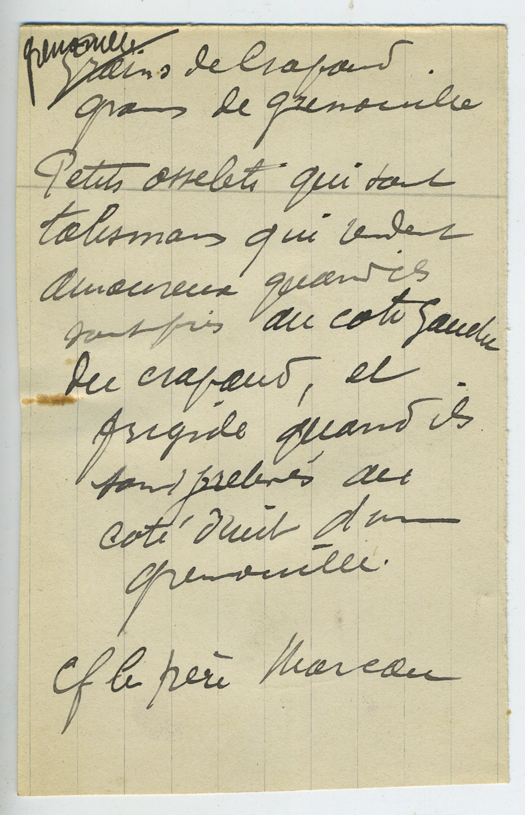 grenouille
grains de Crapaud.
grains de grenouille
Petits osselets qui sont
talismans qui rendent
amoureux quand ils
sont pris au coté gauche
du crapaud, et
frigide quand ils
sont prelevés au
coté droit d'une
grenouille.
Cf le père Marceau